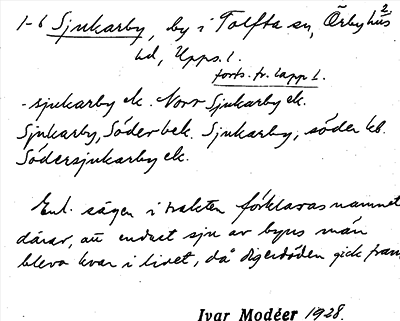 1-6 Sjukarby, by i Tolfta sn, Örbyhus
2
hd, Upps. l.
forts. fr. lapp 1.
-sjukarby ek. Norr Sjukarby ek.
Sjukarby, Söder bek. Sjukarby, söder kl.
Södersjukarby ek.
Enl. sägen i trakten förklaras namnet
därav, att endast sju av byns män
bleva kvar i livet, då digerdöden gick fram,
Ivar Modéer 1928.